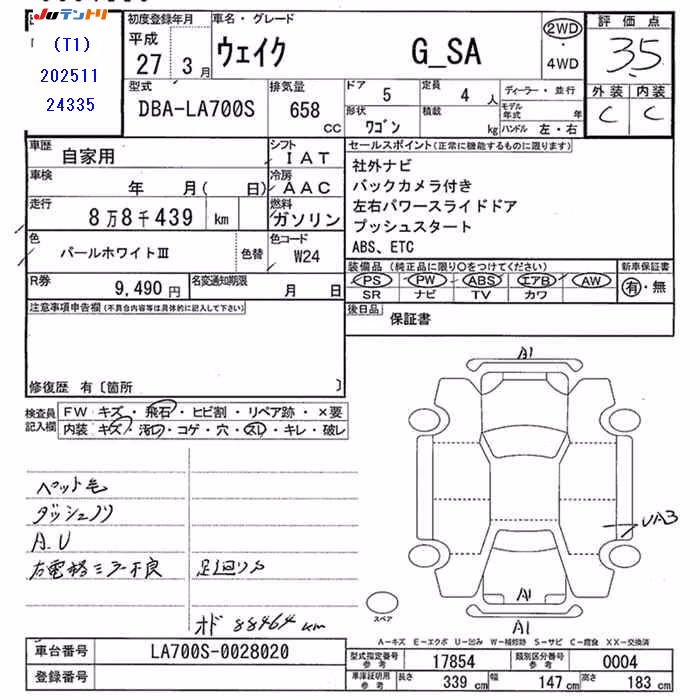 JUテントリ
(T1)
202511
24335
初度登録年月
平成
27年 3月
車名・グレード
ウェイク G_SA
2WD
・
4WD
評価点
3.5
外装 内装
C C
型式
DBA-LA700S
排気量
658 CC
ドア
5
定員
4 人
形状
ワゴン
積載
kg
ディーラー・並行
モデル年式 年
ハンドル 左・右
車歴
自家用
シフト
IAT
車検
年 月( 日)
冷房
AAC
走行
8万8千439 km
燃料
ガソリン
色
パールホワイトⅢ
色替
色コード
W24
R券
9,490 円
名変通知期限
月 日
セールスポイント(正常に機能するものに限ります)
社外ナビ
バックカメラ付き
左右パワースライドドア
プッシュスタート
ABS、ETC
装備品 (純正品に限り○をつけてください)
PS PW ABS エアB AW
SR ナビ TV カワ
新車保証書
有・無
後日品
保証書
注意事項申告欄(不具合内容等は具体的に記入して下さい)
修復歴 有〔箇所 〕
検査員
記入欄
FW キズ・飛石・ヒビ割・リペア跡・×要
内装 キズ・汚れ・コゲ・穴・スレ・キレ・破レ
ペット毛
ダッシュノリ
A.U
右電格ミラー不良
足回りサ
オド 88464 km
A1
UA3
A1
A1
スペア
A-キズ E-エクボ U-凹み W-補修跡 S-サビ C-腐食 XX-交換済
車台番号
LA700S-0028020
登録番号
型式指定番号
参考
17854
類別区分番号
参考
0004
車庫証明用
参考
長さ 339 cm 幅 147 cm 高さ 183 cm